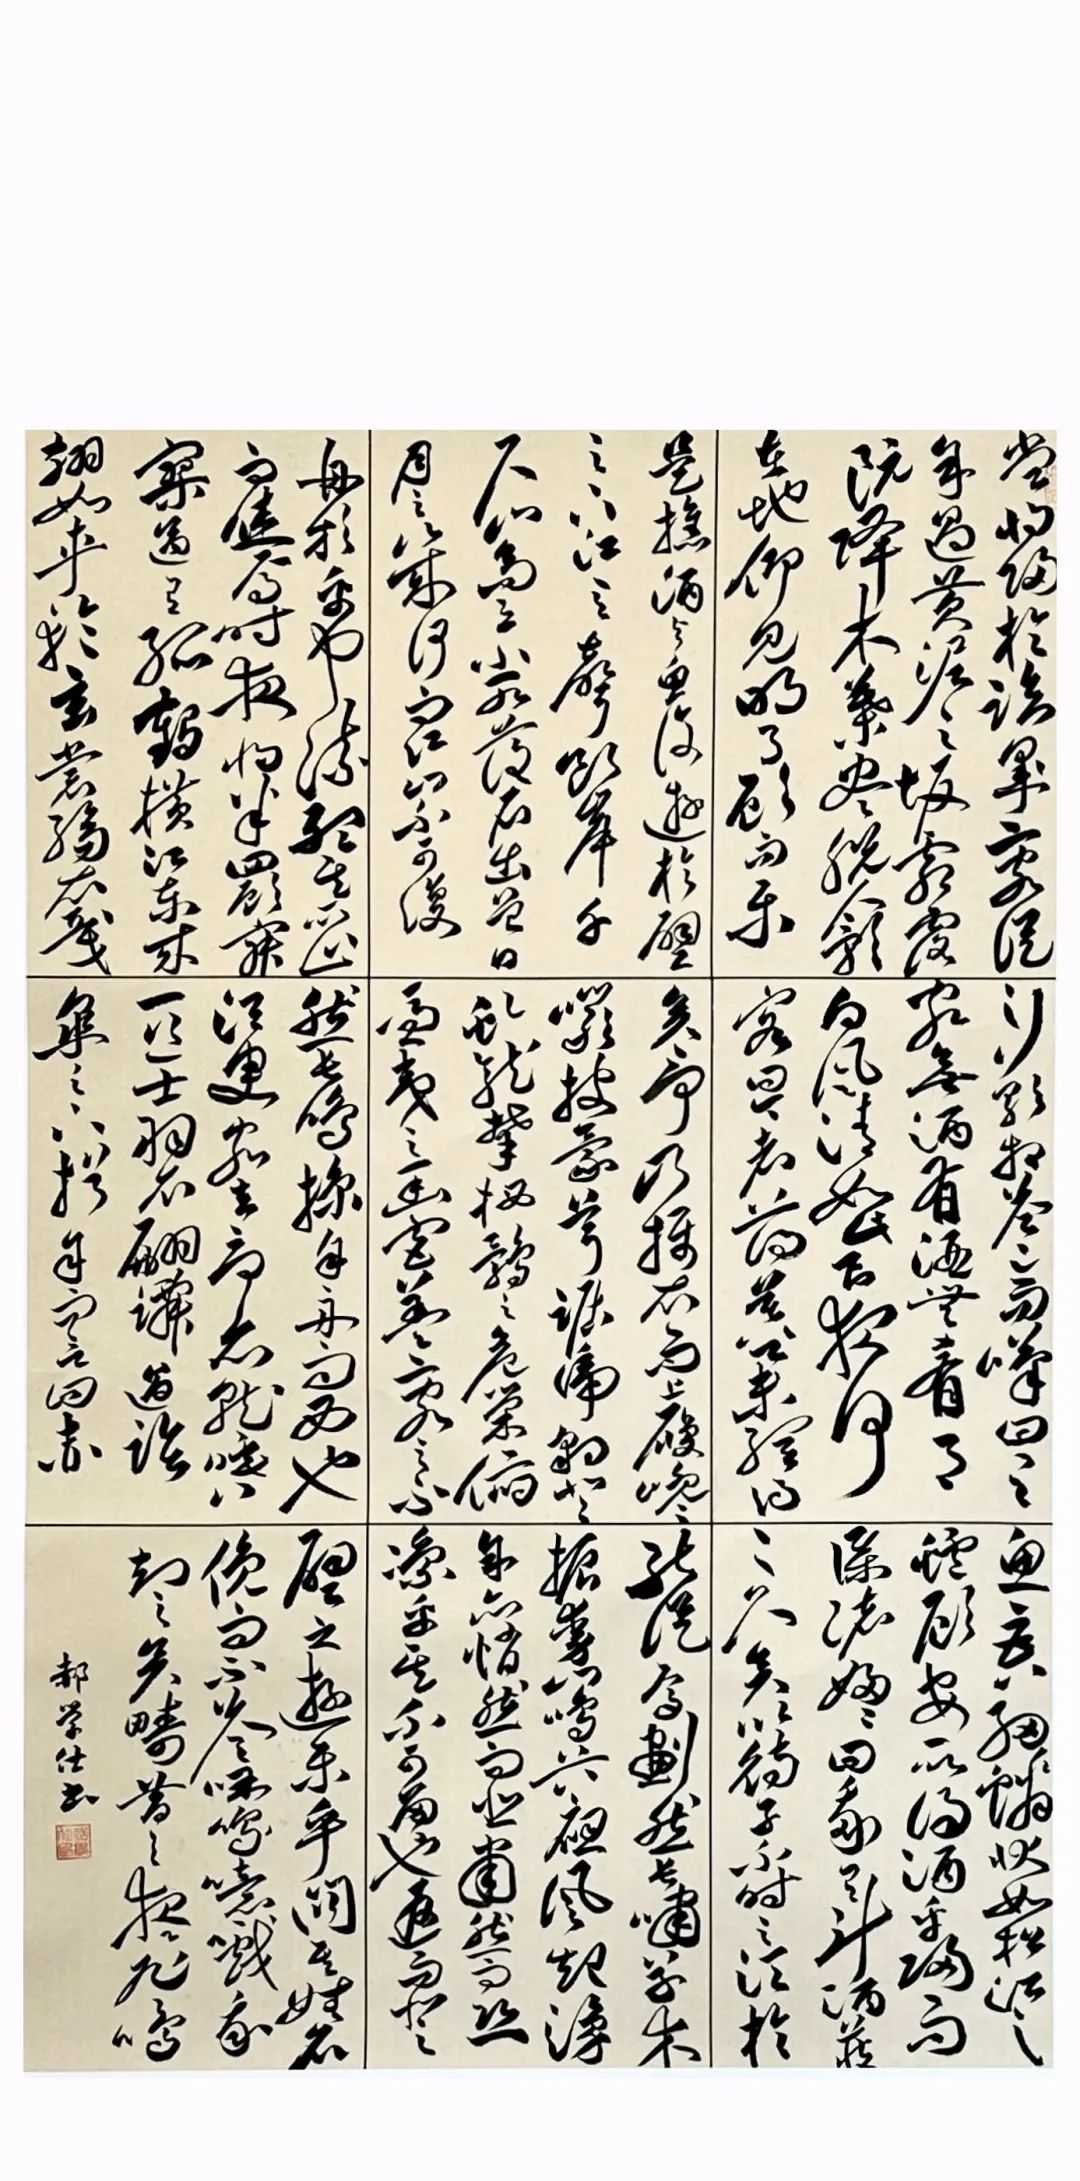 堂将归於临皋二客从
余过黄泥之坂霜露
既降木叶尽脱人影
在地仰见明月顾而乐
行歌相答已而叹曰
客无酒有酒无肴月
白风清如此良夜何
客曰今者薄暮举网得
鱼巨口细鳞状如松江之
鲈顾安所得酒乎归而
谋诸妇妇曰我有斗酒藏
之久矣以待子不时之须於
是携酒与鱼复游於壁
之下江之声断岸千
尺山高月小水落石出曾日
月之几何而江山不可复
矣予乃摄衣而上履巉
岩披蒙茸踞虎豹登
虬龙攀栖鹘之危巢俯
冯夷之幽宫盖二客之不
能从焉划然长啸草木
振动山鸣谷应风起涌
予亦悄然而悲肃然而恐
凛乎其不可留也返而登
舟放乎中流听其所止
而休焉时夜将半四顾寂
寥适有孤鹤横江东来
翅如车轮玄裳缟衣戛
然长鸣掠予舟而西也
须臾客去予亦就睡
一道士羽衣翩跹过临
皋之下揖予而言曰赤
壁之游乐乎问其姓名
俛而不答呜呼噫嘻我
知之矣畴昔之夜飞鸣
郝学仕书